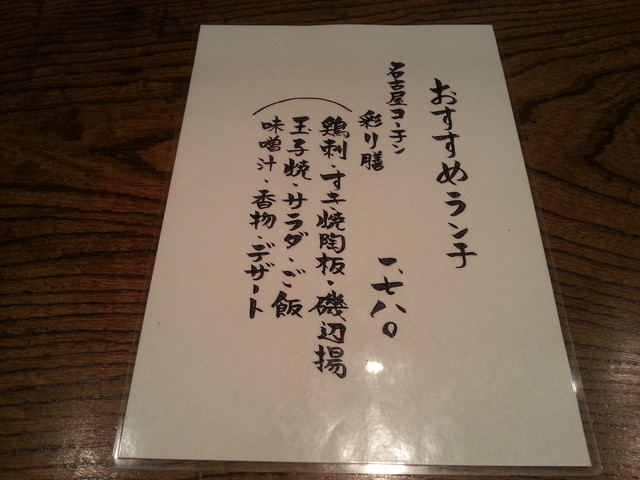 おすすめランチ
名古屋コーチン
彩り膳 一、七八〇
鶏刺・すき焼陶板・磯辺揚
玉子焼・サラダ・ご飯
味噌汁・香物・デザート